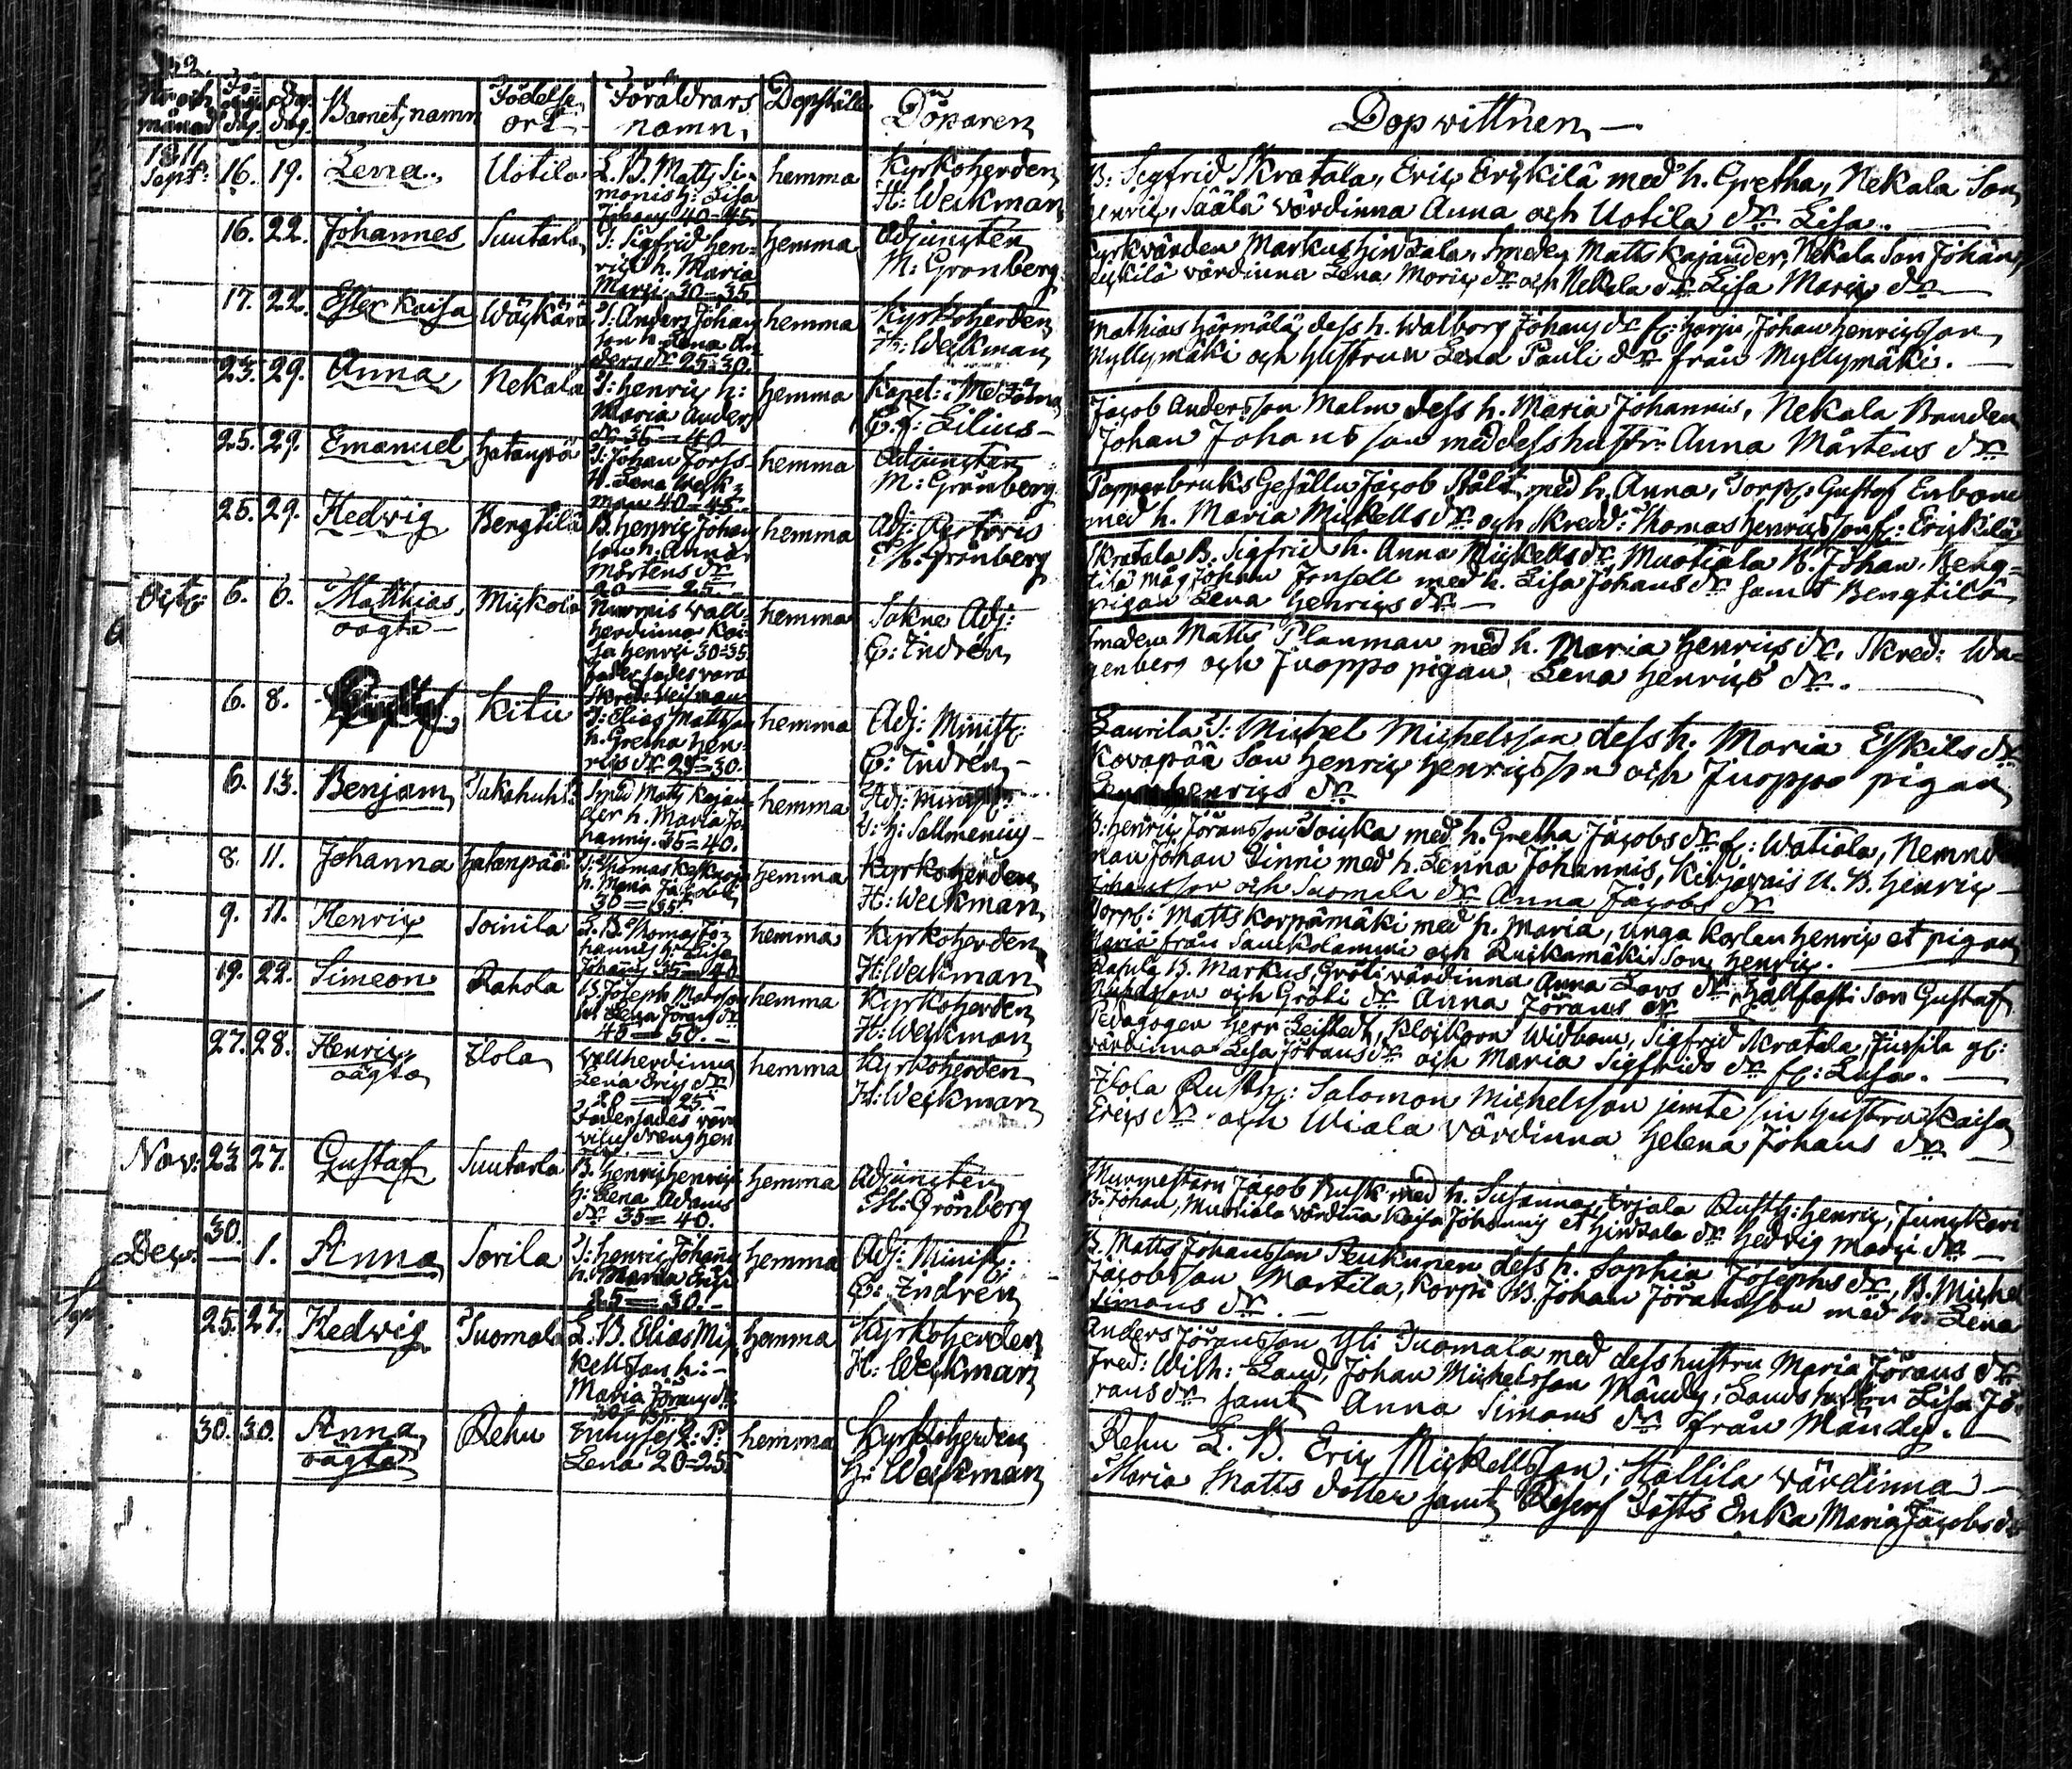 Barnets namn
Födelse
ort
Föräldrars
namn
Dopställe
Döparen
Dopvittnen
1811
Sept: 16. 19. Lena Uotila
L. B. Matts Si-
monis h: Lisa
Johans 40=45
hemma
Kyrkoherden
H: Weckman
B: Sigfrid Skratala, Eric Erickilä med h. Gretha, Nekala Son
Henric, Säälä värdinna Anna och Uotila dr Lisa.
16. 22. Johannes Suutarla
T: Sigfrid Hen-
rics h. Maria
30=35
hemma
Adjuncten
M: Grönberg
Kyrkvärden Markus Hintzala, Smeden Matts Kajander, Nekala Son Johan,
värdinna Lena dr och Nekala dr Lisa
17. 22. Ester Kaisa
T: Anders Johans
son h. Lena An
ders dr 25=30.
hemma
Kyrkoherden
H: Weckman
Mathias Härmälä, dess h. Walborg Johans dr fr: Harju, Johan Henricsson
Myllymäki och Hustrun Lena Pauli dr från Myllymäki.
23. 29. Anna Nekala
T: Henric h:
Maria Anders
dr 35=40
hemma
Kapel: i
C. J. Lilius
Jacob Andersson Malm dess h. Maria Johannis, Nekala Bonden
Johan Johansson med dess hustr: Anna Mårtens dr
25. 29. Emanuel Hatanpä
T: Johan Forss
h. Lena Weck=
man 40=45.
hemma
Adjuncten
M: Grönberg
Pappersbruks Gesällen Jacob Stålt med h. Anna, Torpp: Gustaf Enbom
med h. Maria Mickels dr och Skredd: Thomas Henricsson fr: Erickilä
25. 29. Hedvig Bengtilä
B. Henric Johans
son h. Anna
Mårtens dr
20=25.
hemma
Adj: Pastoris
M. Grönberg
Skratala B. Sigfrid h. Anna Mickels dr, Muotiala B. Johan, Beng=
tilä måg Johan med h. Lisa Johans dr samt Bengtilä
pigan Lena Henrics dr
Oct: 6. 6. Matthias Mickola
oägta
Nurmis wall-
herdinna Kai-
sa Henrics 30=35
fader sades vara
Skred:
hemma
Sokne Adj:
C: Indrén
Smeden Matts Planman med h. Maria Henrics dr, Skred: Wa-
genberg och Juoppo pigan Lena Henrics dr.
6. 8. Kitu
T: Elias Mattsson
h. Gretha Hen-
rics dr 25=30.
hemma
Adj: Minist:
C: Indrén
Laurila T: Michel Michelsson dess h. Maria Eskils dr
Kovapää Son Henric Henricsson och Juoppo pigan
Henrics dr
6. 13. Benjam. Takahuhti
Smed Matts Kajan-
der h. Maria Jo-
hannis. 35=40.
hemma
Adj: Minist:
H. Sallmenius
B: Henric Jöransson Soicka med h. Gretha Jacobs dr fr: Watiala, Nemnde
man Johan Linni med h. Lenna Johannis, B. Henric
Johansson och Suomala dr Anna Jacobs dr
8. 11. Johanna Hatanpää
T: Thomas
h. Maria
30=35.
hemma
Kyrkoherden
H: Weckman
Torpp: Matts Korpämäki med h. Maria, unga Karlen Henric et pigan
Maria från och Ruskamäki Son Henric.
9. 11. Henric Soinila
L. B. Thomas Jo-
hannis h: Lisa
Johans 35=40
hemma
Kyrkoherden
H: Weckman
B. Markus, Gröti värdinna Anna Lars dr, Hallfasti Son Gustaf
och Gröti dr Anna Jörans dr
19. 22. Simeon Rahola
B. Joseph Matsson
h: Lena dr
45=50.
hemma
Kyrkoherden
H: Weckman
Pedagogen Herr Leistedt, Klockare Widbom, Sigfrid Skratala, Jussila
värdinna Lisa Jörans dr och Maria Sigfrids dr
27. 28. Henric Ilola
oägta
Wallherdinna
Lena Erics dr
20=25
Fader sades vara
dreng Hen
hemma
Kyrkoherden
H: Weckman
Ilola Rusth: Salomon Michelsson jemte sin hustru Kaisa
Erics dr och Wiala Värdinna Helena Johans dr
Nov: 23 27. Gustaf Suutarla
B. Henric Henrics
h: Lena Adams
dr 35=40.
hemma
Adjuncten
M. Grönberg
Murmestarn Jacob Rusk med h. Susanna, Rusth: Henric,
B: Johan, Muotiala värdinna Kaisa Johannis et Hintzala dr Hedvig dr
30.
Dec: 1. Anna Sorila
T: Henric Johans
h: Maria Erics
25=30.
hemma
Adj: Minist:
C: Indrén
B. Matts Johansson Peukunen dess h. Sophia Josephs dr, B. Michel
Jacobsson Martila, Korpi B. Johan Jöransson med h. Lena
Simons dr.
25. 27. Hedvig Suomala
L. B. Elias Mic
kelsson h:
Maria Jörans dr
30=35.
hemma
Kyrkoherden
H: Weckman
Anders Jöransson Yli Suomala med dess hustru Maria Jörans dr
Fred: Wilh: Lund, Johan Michelsson Mändy, Lunds hustru Lisa Jö-
rans dr samt Anna Simons dr från Mändy.
30. 30. Anna Rehu
oägta
Lena 20=25
hemma
Kyrkoherden
H: Weckman
Rehu L. B. Eric Mickelsson, Hallila värdinna
Maria Matts dotter samt Enka Maria Jacobs dr